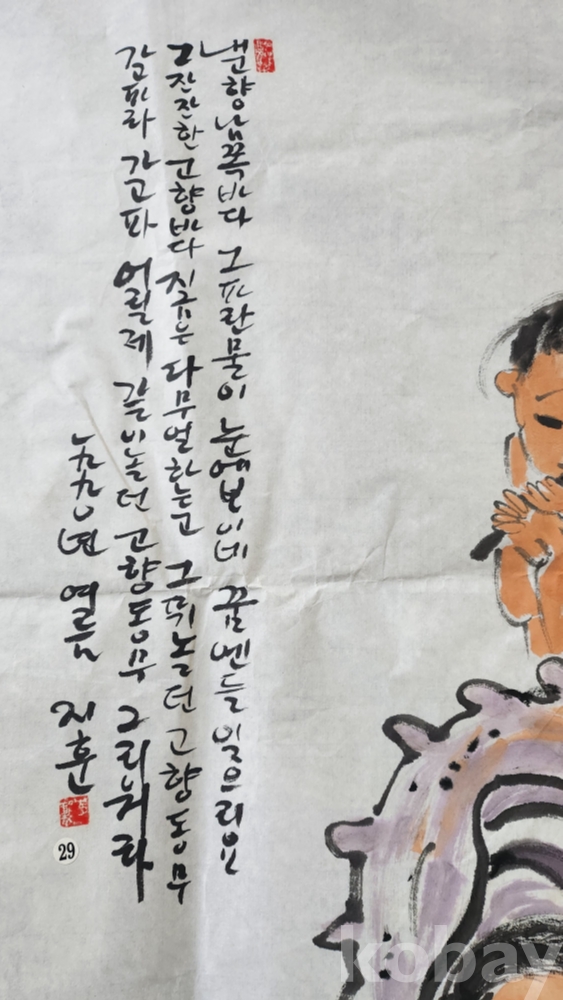 내고향남쪽바다 그파란물이 눈에보이네 꿈엔들 잊으리요
그잔잔한고향바다 지금은 다무얼하는고 그뛰놀던 고향동무
가고파라 가고파 어릴제 같이놀던 고향동무 그리워라
년 여름 지훈
29
kobay